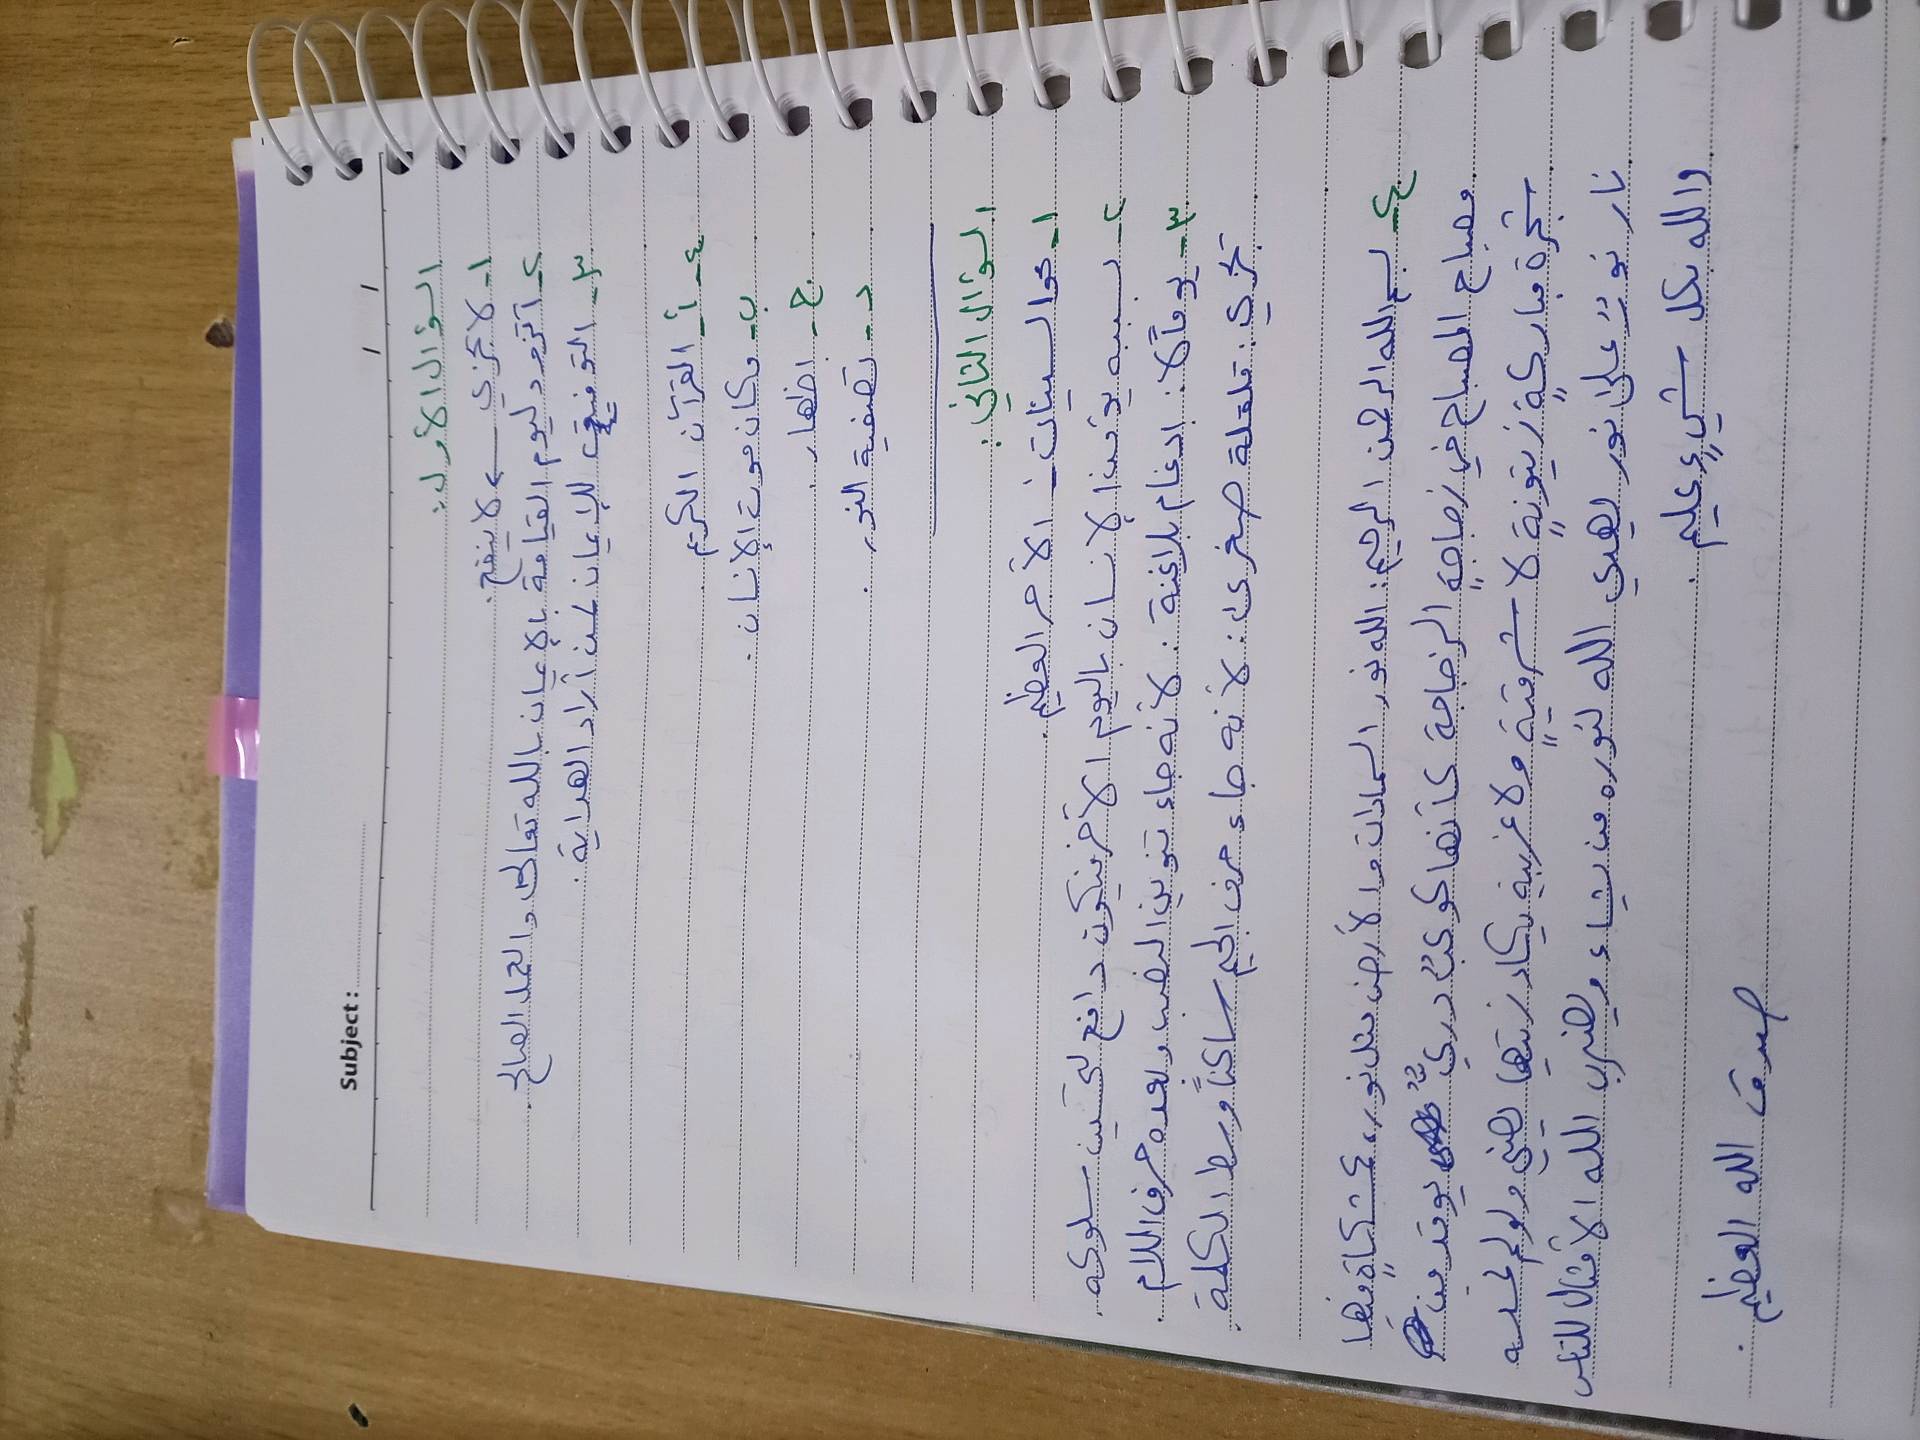 Subject :
/ /
السؤال الأول:
١- لا تجزي ← لا ينفع.
٢- أتزود ليوم القيامة بالإيمان بالله تعالى والعمل الصالح.
٣- التوفيق للإيمان لمن أراد الهداية.
٤- أ- القرآن الكريم
ب- مكان موت الإنسان.
ج- اظهار.
د- تصفية النذر.
السؤال الثاني:
١- حوا السيئات - الأجر العظيم.
٢- لسببه يؤمن الإنسان باليوم الآخر فيكون دافع لتحسين سلوكه.
٣- يوماً لا: ادغام بلا غنة: لأنه جاء تنوين النصب وبعده حرف اللام.
تجزي: قلقلة صغرى: لأنه جاء حرف الجيم ساكناً وسط الكلمة.
٤- بسم الله الرحمن الرحيم: الله نور السماوات والأرض مثل نوره كمشكاة فيها
مصباح المصباح في زجاجةٍ الزجاجة كأنها كوكبٌ دريٌ يوقد من
شجرة مباركةٍ زيتونةٍ لا شرقيةٍ ولا غربيةٍ يكاد زيتها يضيئ ولو لم تمسسه
نار نورٌ على نور يهدي الله لنوره من يشاء ويضرب الله الأمثال للناس
والله بكل شيءٍ عليم.
صدق الله العظيم.